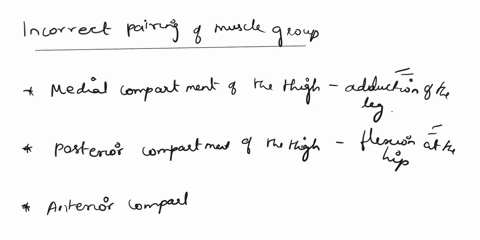 Incorrect pairing of muscle group
* Medial compartment of the thigh - adduction of the
leg.
* Posterior compartment of the thigh - flexion at the
hip
* Anterior compart